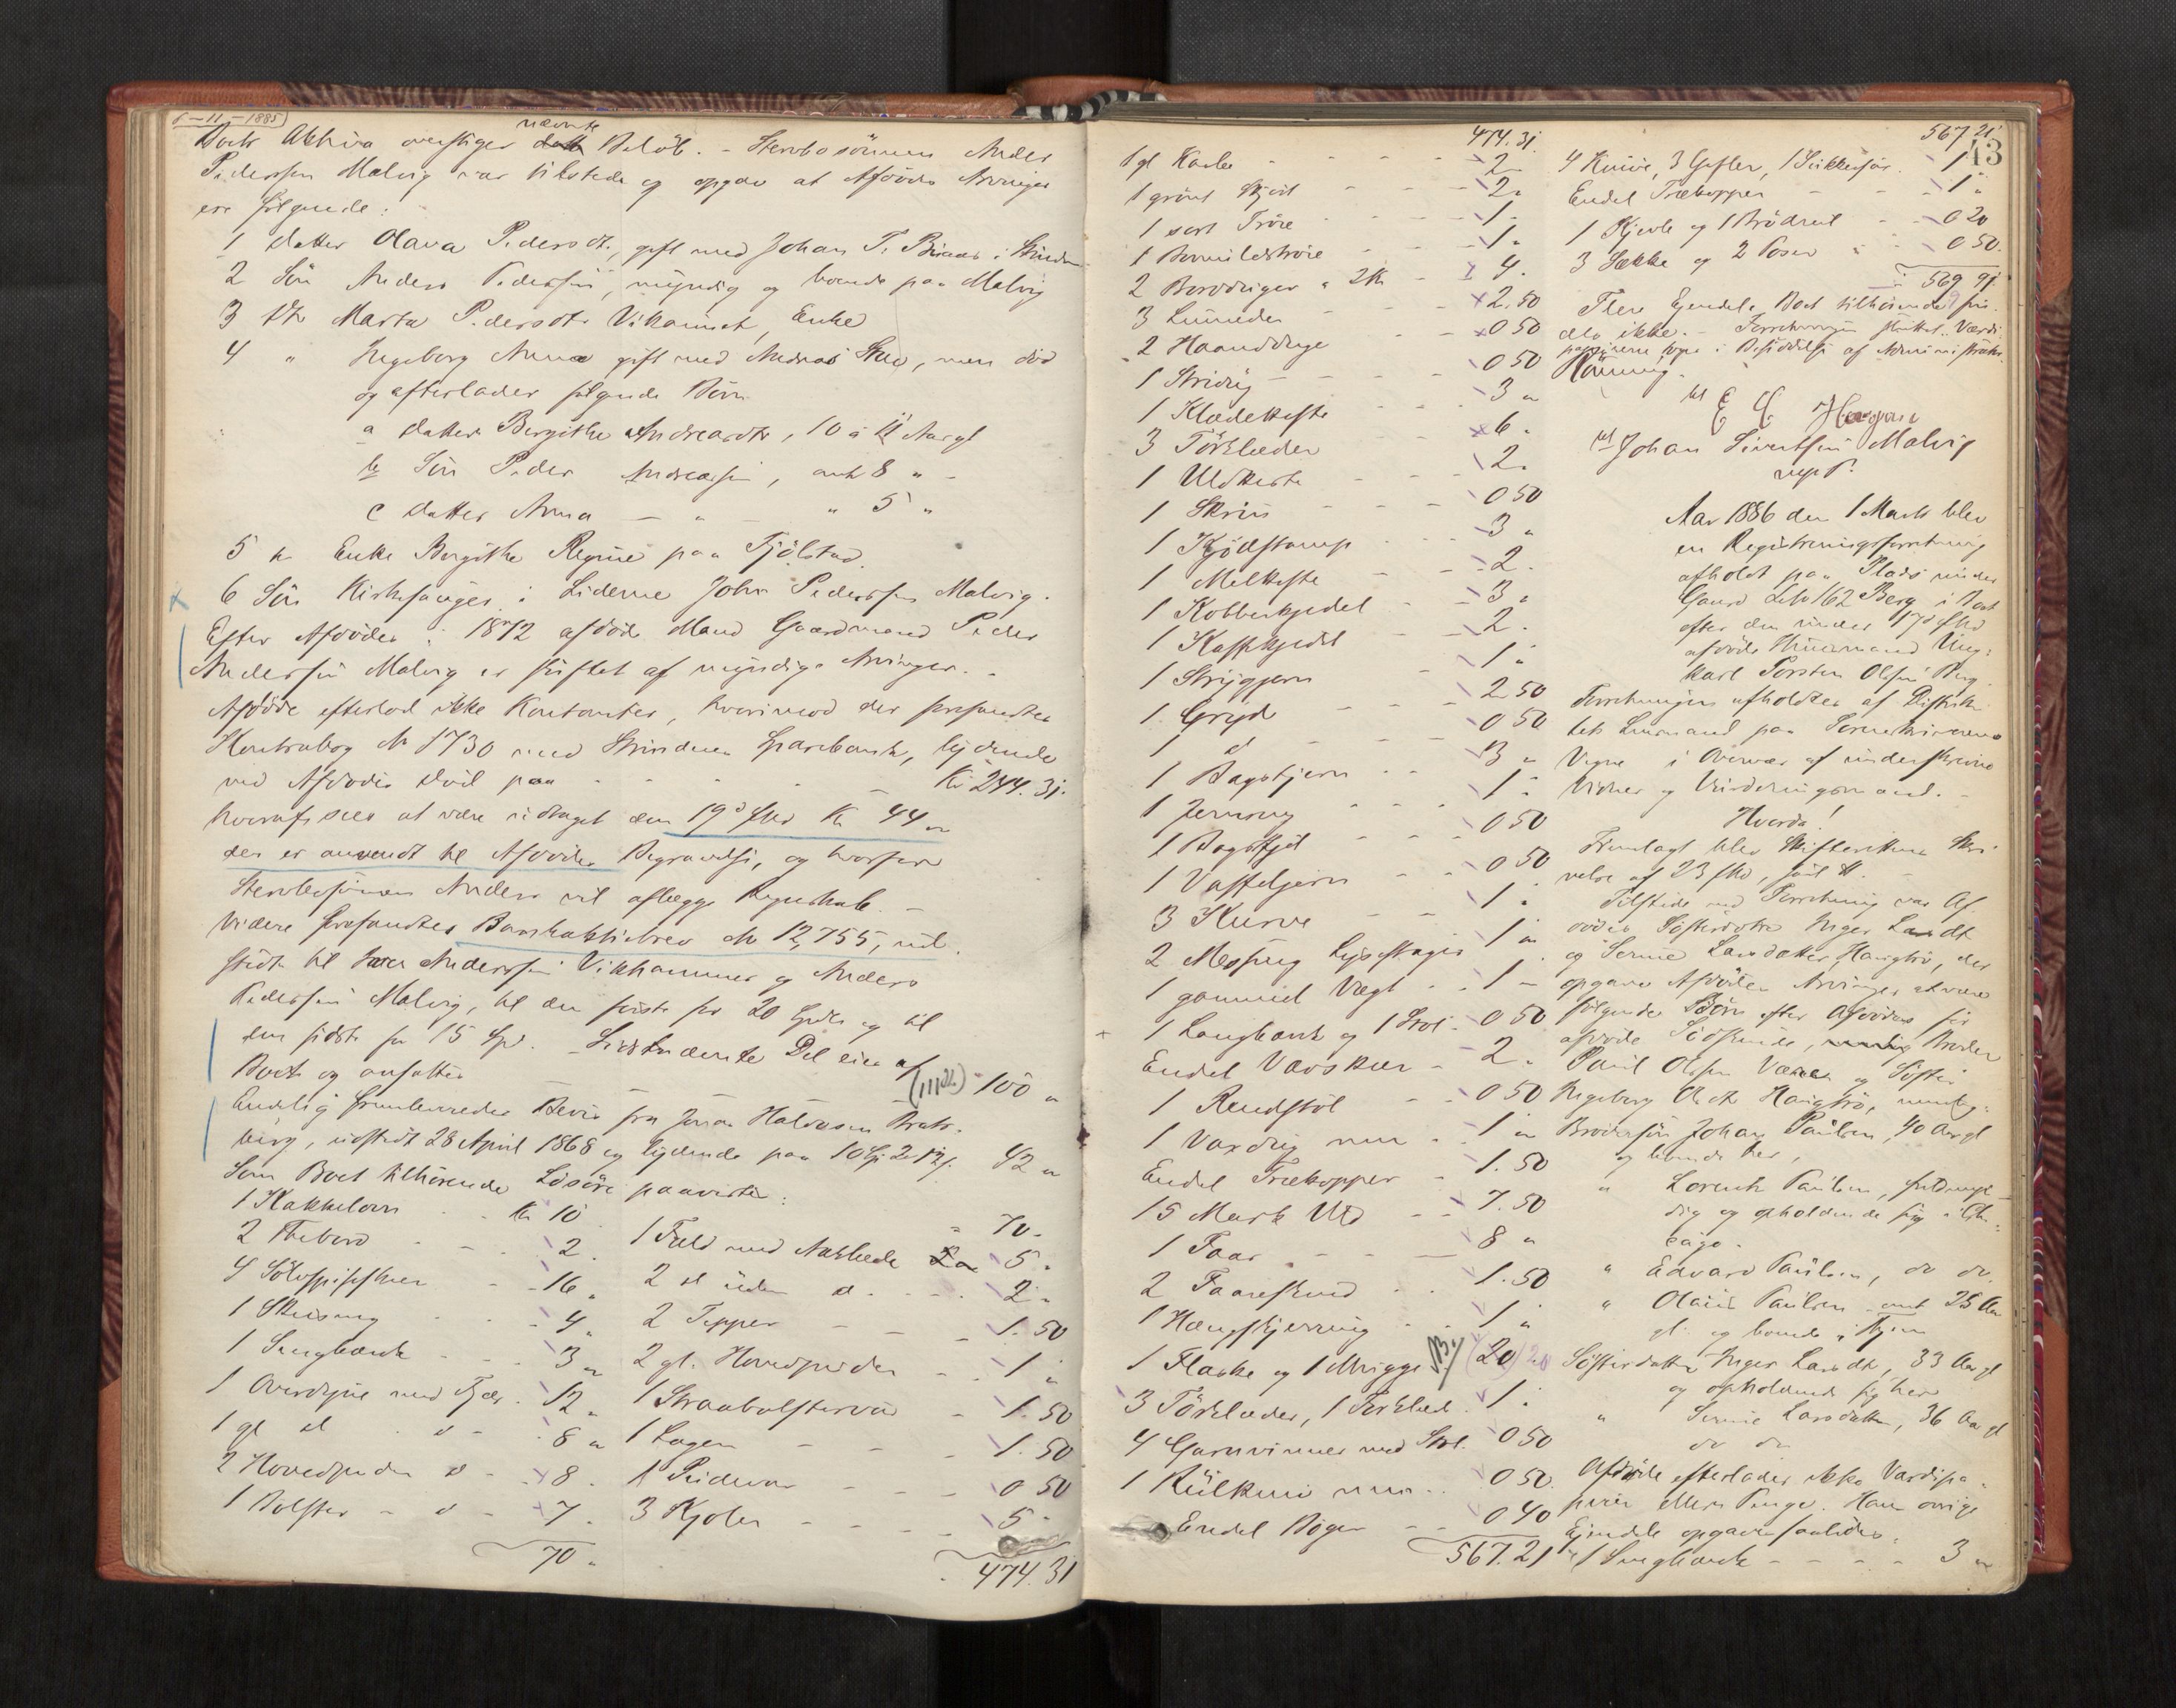 6-11-1885
Boets Aktiva overstiger nævnte Beløb. - Stervbosönnen Anders
Pederssen Malvig var tilstede og opgav at Afdödes Arvinger
ere fölgende:
1 Datter Olava Pedersdt., gift med Johan P. i Strinden
2 Sön Anders Pederssen, myndig og boende paa Malvig
3 Dtr Marta Pedersdtr Vikanmet, Enke
4 " Ingeborg Anna gift med Andreas, men död
og efterlader fölgende Börn
a Datter Bergithe Andreasdtr, 10 à 11 Aar gl
b Sön Peder Andreassen, omt 8 " -
c Datter Anna - " - " 5 "
5 Enke Bergitha Regine paa Fjölstad
6 Sön Kirkesanger i Lideme John Pederssen Malvig.
Efter Afdödes i 1872 afdöde Mand Gaardmand Peder
Anderssen Malvig er skiftet af myndige Arvinger. -
Afdöde efterlod ikke Kontanter, hvorimod der forefandtes
Kontrabog No 1730 med Strindens Sparebank, lydende
ved Afdödes Död paa - - - Kr 244.31.
hvoraf sees at være udtaget den 19 d. Kr 44 "
der er anvendt til Afdödes Begravelse, og hvorfor
Stervbosönnen Anders vil aflægge Regnskab. -
Videre forefandtes Bankaktiebrev No 12,755, ud-
stedt til Iver Anderssen Vikhammer og Anders
Pederssen Malvig, til den förste for 20 Spdr og til
den sidste for 15 Spd. - Sidstnævnte Del eies af
Boet og ansattes - - - 100 "
Endelig fremlevredes Bevis fra Jonas Halvorsen Brats-
berg, udstedt 28 April 1868 og lydende paa 10 Sp. 2 12/. 42 "
Som Boet tilhörende Lösöre paavistes:
1 Kakkelovn - Kr 10
2 Thebord - - - 2.
4 Sölvspiseskeer - - 16 "
1 Skeising - - 4 "
1 Sengbænk - - - 3 "
1 Overdyne med Fjær - 12 "
1 gl d . d - - 8 "
2 Hovedpuder d - - 8 .
1 Bolster - d - 7 .
70 "
" 70 -
1 Fæld med Aaklæde 5 "
2 d uden d . - - 2 "
2 Tepper - - - 1.50
2 gl. Hovedpuder - - 1 "
1 Straabolstervar - 1.50
1 Lagen - - - 1.50
1 Pudevar - - - 0 50
3 Kjoler - - - 5 -
474.31
474.31.
1 gl Kaabe - - - - 2 "
1 grönt Skjört - - - 2 "
1 sort Tröie - - - - 1 -
1 Bomuldströie - - - 1 "
2 Bordduger a 2 Kr - 4.
3 - - - 2.50
2 Haandduge - - 0 50
1 - - - 0 50
1 Klædekiste - - 3 "
3 Törklæder - - 6 "
1 Uldkiste - - 2 "
1 Skrin - - - 0 50
1 Kjödstamp - - - 3 "
1 Melkiste - - 2 .
1 Kobberkjedel - - 3 "
1 Kaffekjedel - - 2 .
1 Strygejern - - - 1 "
1 Gryde - - - 2 50
1 d - - - - 0 50
1 Bagstjern - - - 3 "
1 Jernring - - - 1 "
1 Bagstfjöl - - - 0 50
1 Vaffeljern - - 0 50
3 Kurve - - - 1 "
2 Messing Lysestager 1 "
1 gammel Vægt - - 1 -
1 Langbænk og 1 Stol - 0 50
Endel Vævskeer - 2 "
1 Rendstol - - 0 50
1 Voxdug - - 1 "
Endel Trækopper - 1.50
15 Mark Uld - - 7.50
1 Faar - - - 8 "
2 Faareskind - - 1.50
1 Hængskjerring - - 1 "
1 Flaske og 1 Mugge (20) 20
3 Törklæder, 1 Forklæd - 1 "
4 Garnvinner med Stol. 0 50
1 - - 0 50.
Endel Böger - - 0 40
567.21
567 21
43
4 Knive, 3 Gafler, 1 Sukkersax. 1 -
Endel Trækopper - - - 1 "
1 Kjevle og 1 Brödmel - - 0 20
3 Sække og 2 Poser - - 0 50.
569 91
Flere Ejendele Boet tilhörende fin-
des ikke. - Forretningen sluttet. Værdi-
papirerne toges i Besiddelse af Administrator
Rönning.
E E
Johan Sivertsen Malvig
m. p. P.
Aar 1886 den 1 Marts blev
en Registreringsforretning
afholdt paa Plads under
Gaard Löb 162 Berg i Boet
efter den under 17 d. Md
afdöde Huusmand Ung-
karl Torsten Olsen Berg.
Forretningen afholdtes af Distrik-
tets Lensmand paa Sorenskriverens
Vegne i Overvær af underskrevne
Vidner og Vurderingsmænd. -
Hvorda!
Fremlagt blev Skifterettens Skri-
velse af 23 f. Md, saal #.
Tilstede ved Forretning var Af-
dödes Södsterdötre Inger Larsdt
og Serine Larsdatter Haugtrö, der
opgave Afdödes Arvinger at være
fölgende Börn efter Afdödes för
afdöde Södskende, Broder
Paul Olsen og Söster
Ingeborg Olsdt Haugtrö, nemlig:
Brodersön Johan Paulsen, 40 Aar gl
og boende her,
" Lorents Paulsen, fuldmyn-
dig og opholdende sig i Chi-
cago.
" Edvard Paulsen, do do.
" Olaus Paulsen omt 25 Aar
gl. og boende i Byen
Sösterdatter Inger Larsdt, 33 Aar gl
og opholdende sig her
" Serine Larsdatter, 36 Aar gl
do do
Afdöde efterlader ikke Værdipa-
pirer eller Penge. Hans övrige
Ejendele opgaves saaledes:
1 Sengbænk - - - - 3 "